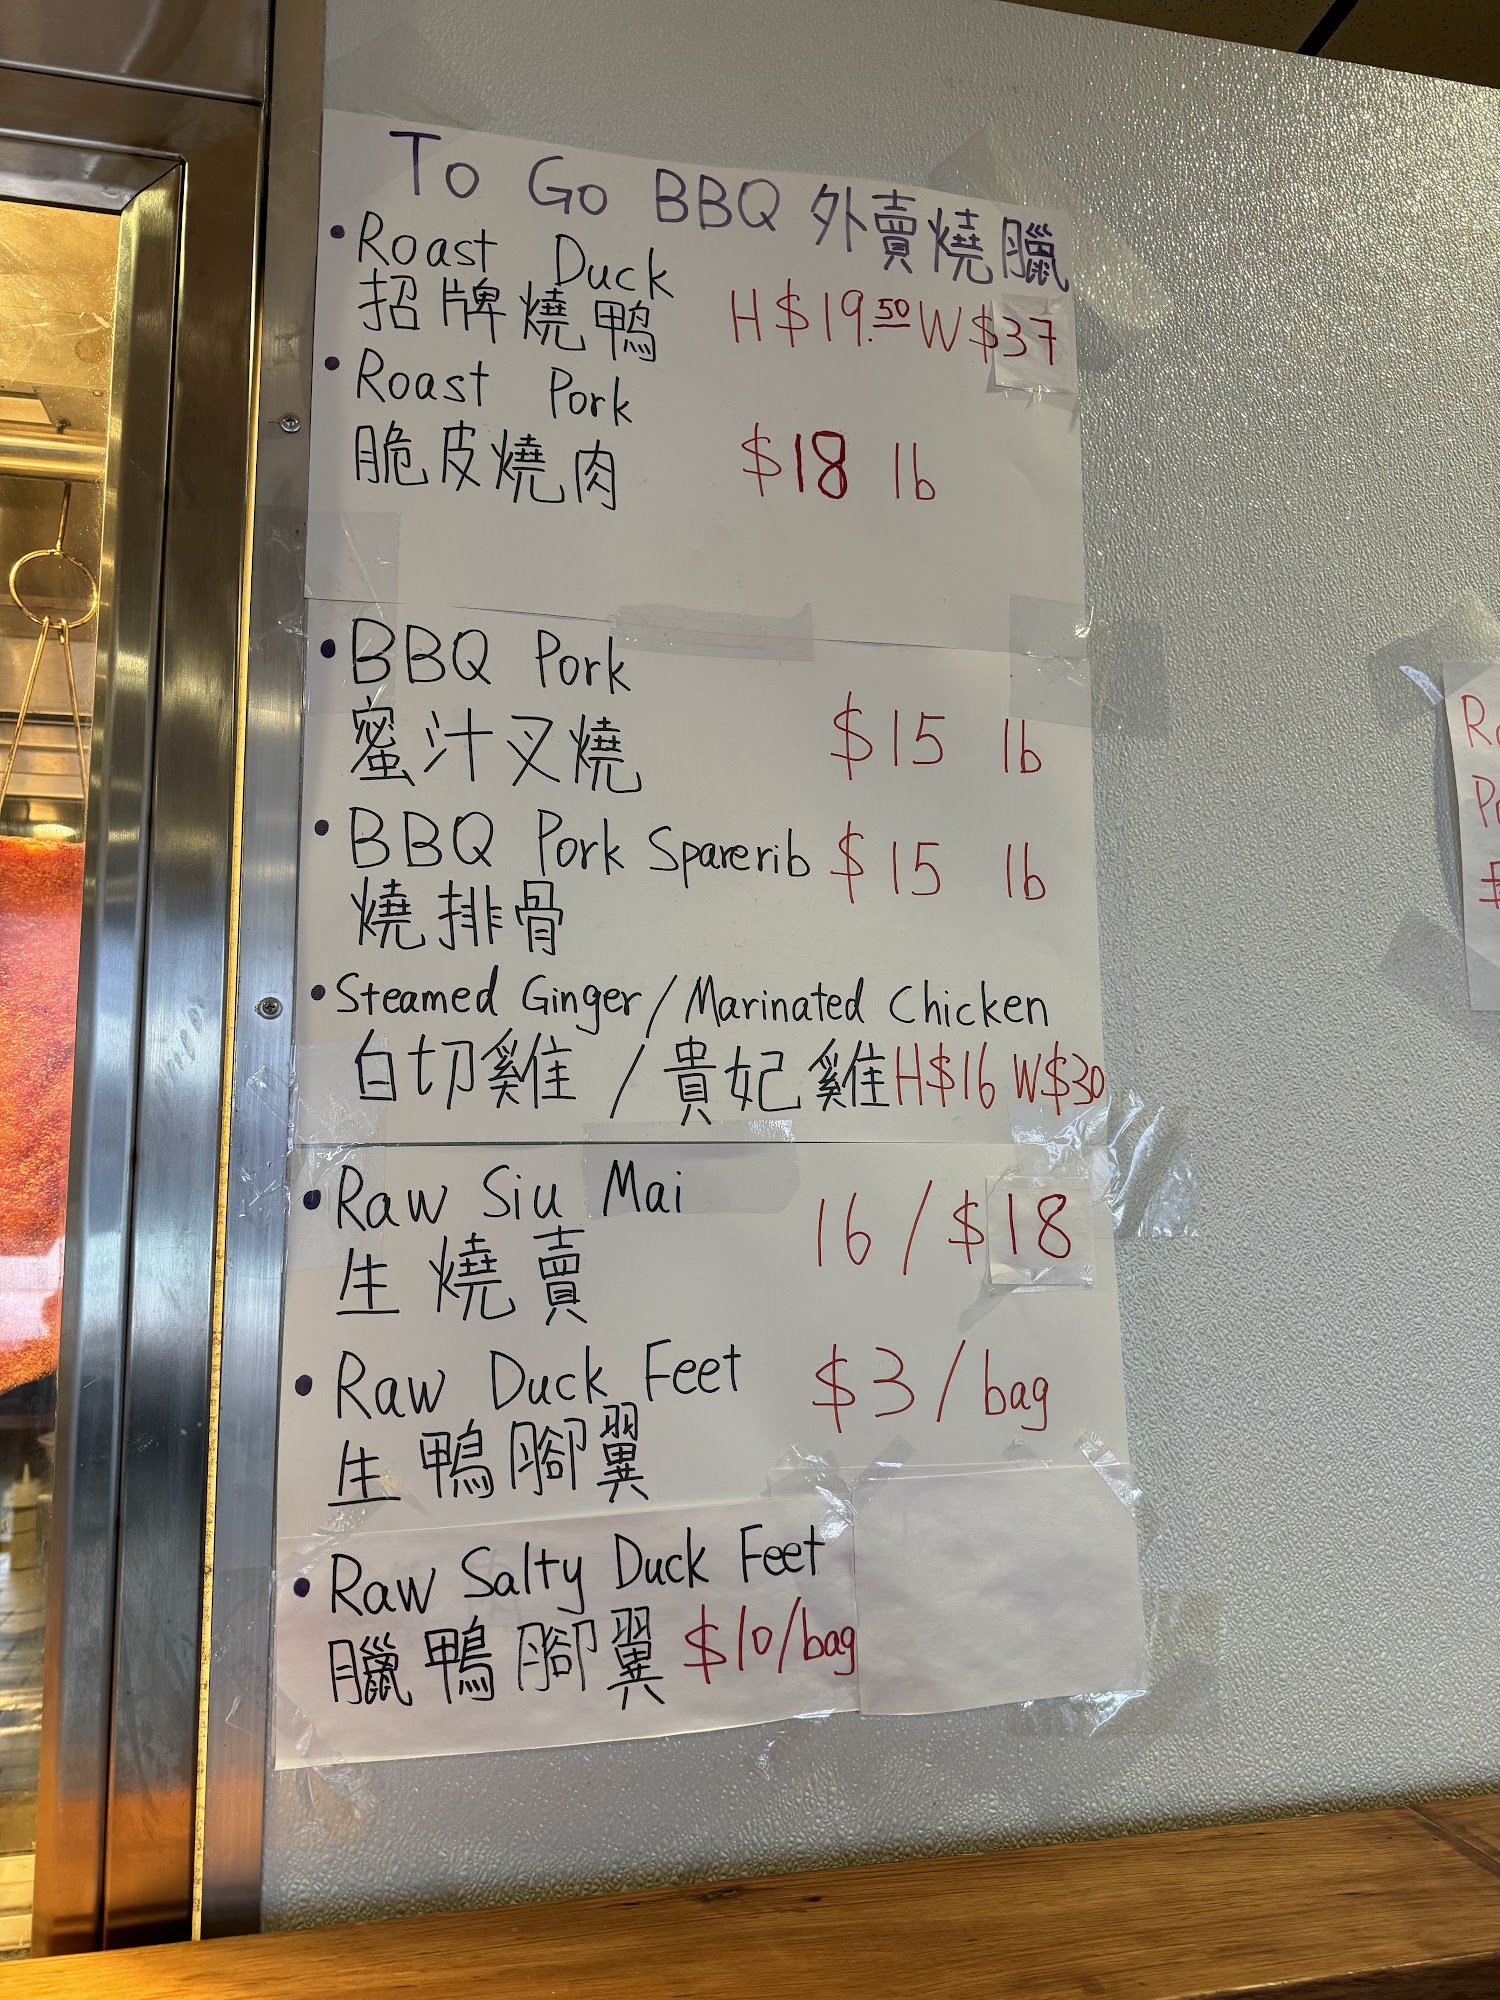 To Go BBQ 外賣燒臘
• Roast Duck
招牌燒鴨 H $19.50 W $37
• Roast Pork
脆皮燒肉 $18 lb
• BBQ Pork
蜜汁叉燒 $15 lb
• BBQ Pork Sparerib $15 lb
燒排骨
• Steamed Ginger/Marinated Chicken
白切雞 / 貴妃雞 H$16 W$30
• Raw Siu Mai 16 / $18
生燒賣
• Raw Duck Feet $3/bag
生鴨腳翼
• Raw Salty Duck Feet
臘鴨腳翼 $10/bag